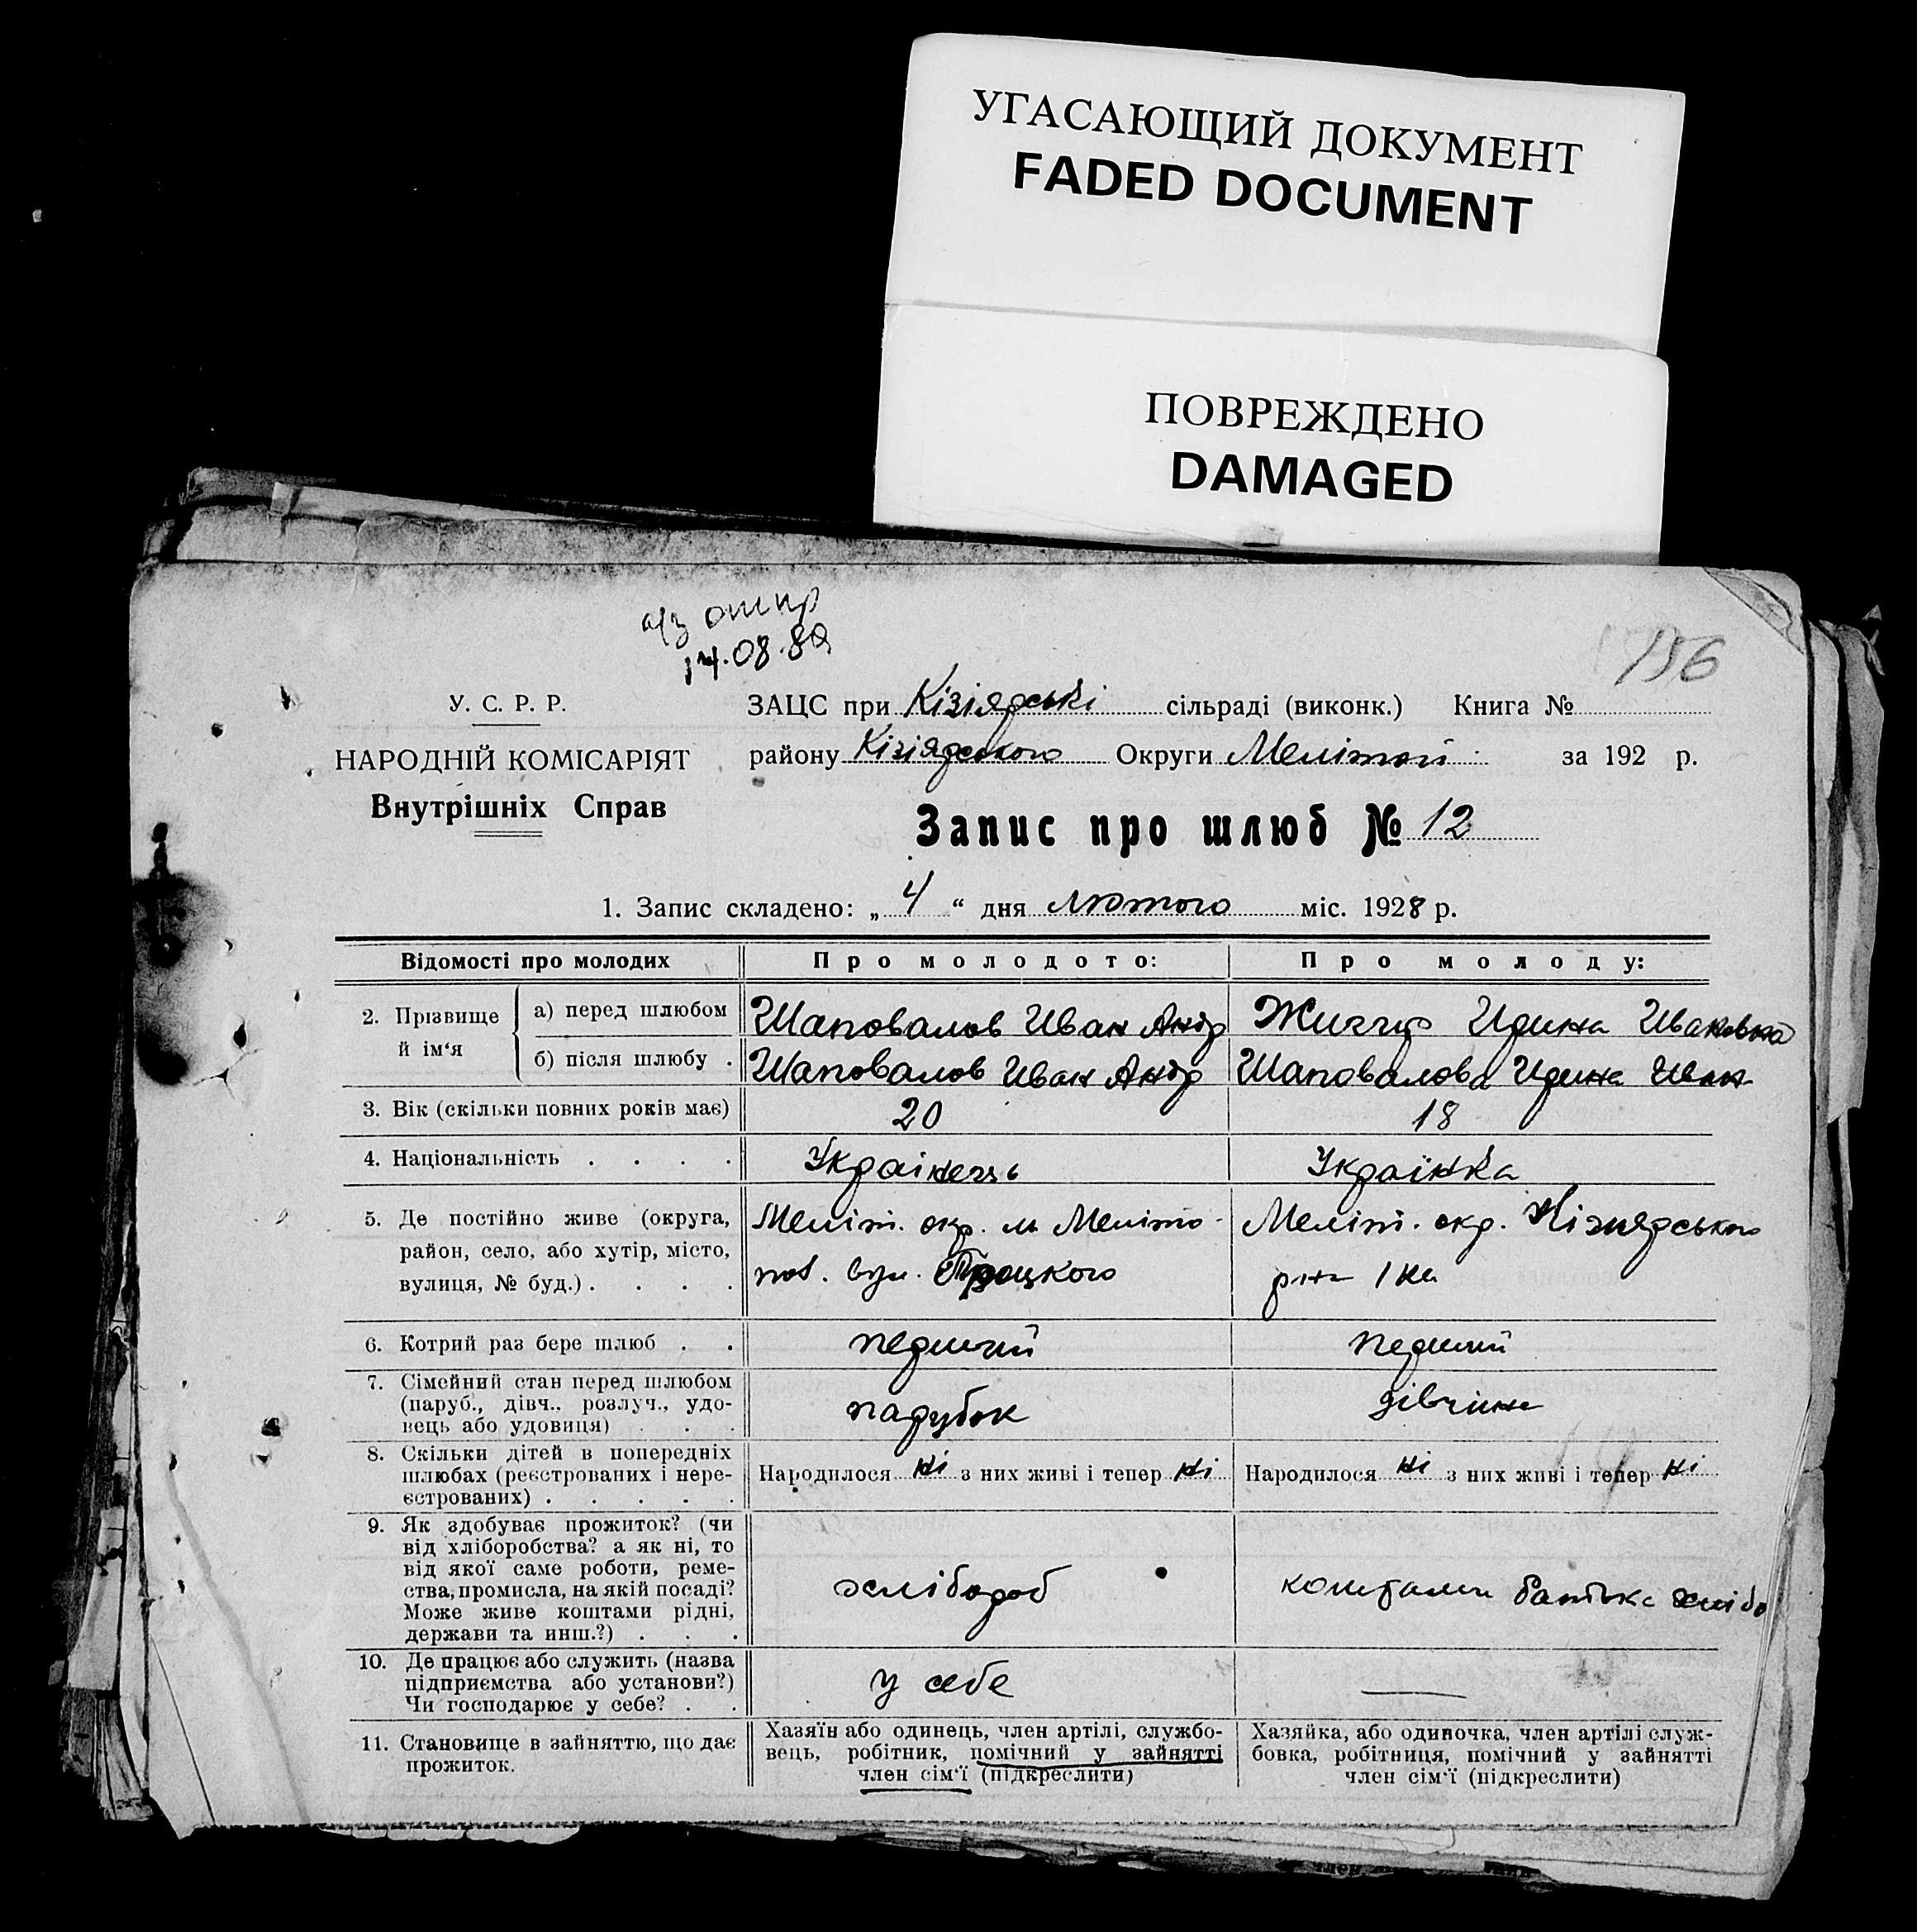 УГАСАЮЩИЙ ДОКУМЕНТ
FADED DOCUMENT
ПОВРЕЖДЕНО
DAMAGED
14.08.89
156
У. С. Р. Р.
НАРОДНІЙ КОМІСАРІЯТ
Внутрішніх Справ
ЗАЦС при Кізіярські сільраді (виконк.) Книга №
району Кізіярського Округи Меліток за 192 р.
Запис про шлюб № 12
1. Запис складено: „ 4 “ дня лютого міс. 1928 р.
Відомості про молодих Про молодото: Про молоду:
2. Прізвище й ім‘я
а) перед шлюбом Шаповалов Иван Андр Ирина Ивановна
б) після шлюбу . Шаповалов Иван Андр Шаповалова Ирина Иван
3. Вік (скільки повних років має) 20 18
4. Національність . . . . Українець Українка
5. Де постійно живе (округа, район, село, або хутір, місто, вулиця, № буд.) . . . .
Меліт. окр. м Меліто-
пol. вул. Троцкого
Меліт. окр. Кізіярського
рна
6. Котрий раз бере шлюб . . перший перший
7. Сімейний стан перед шлюбом
(паруб., дівч.. розлуч., удо-
вець або удовиця) . . . парубок дівчина
8. Скільки дітей в попередніх
шлюбах (реєстрованих і нере-
єстрованих) . . . . .
Народилося ні з них живі і тепер ні
Народилося ні з них живі і тепер ні
9. Як здобуває прожиток? (чи
від хліборобства? а як ні, то
від якої саме роботи, реме-
ства, промисла, на якій посаді?
Може живе коштами рідні,
держави та инш.?) . . .
хлібороб
коштами батька хлібо
10. Де працює або служить (назва
підприємства або установи?)
Чи господарює у себе? . .
у себе
11. Становище в зайняттю, що дає
прожиток.
Хазяїн або одинець, член артілі, службо-
вець, робітник, помічний у зайнятті
член сім‘ї (підкреслити)
Хазяйка, або одиночка, член артілі служ-
бовка, робітниця, помічний у зайнятті
член сім‘ї (підкреслити)